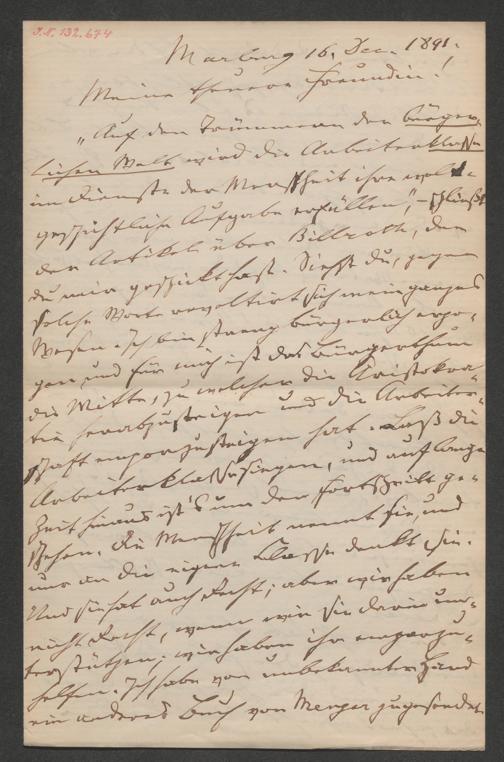 J.N. 132.674
Marburg 16. Dec. 1891.
Meine theuere Freundin!
„Auf den Trümmern der bürger-
lichen Welt wird die Arbeiterklasse
im Dienste der Menschheit ihre welt-
geschichtliche Aufgabe erfüllen", – schließt
der Artikel über Billroth, den
du mir geschickt hast. Siehst du, gegen
solche Worte revoltirt sich mein ganzes
Wesen. Ich bin streng bürgerlich erzo-
gen und für mich ist das Bürgerthum
die Mitte, zu welcher die Aristokra-
tie herabzusteigen und die Arbeiter-
schaft emporzusteigen hat. Laß die
Arbeiterklasse siegen, und auf lange
Zeit hinaus ist's um den Fortschritt ge-
schehen. Die Menschheit nennt sie, und
nur an die eigene Classe denkt sie.
Und sie hat auch Recht; aber wir haben
nicht Recht, wenn wir sie darin un-
terstützen; wir haben ihr emporzu-
helfen. Ich habe von unbekannter Hand
ein anderes Buch von Menger zugesendet